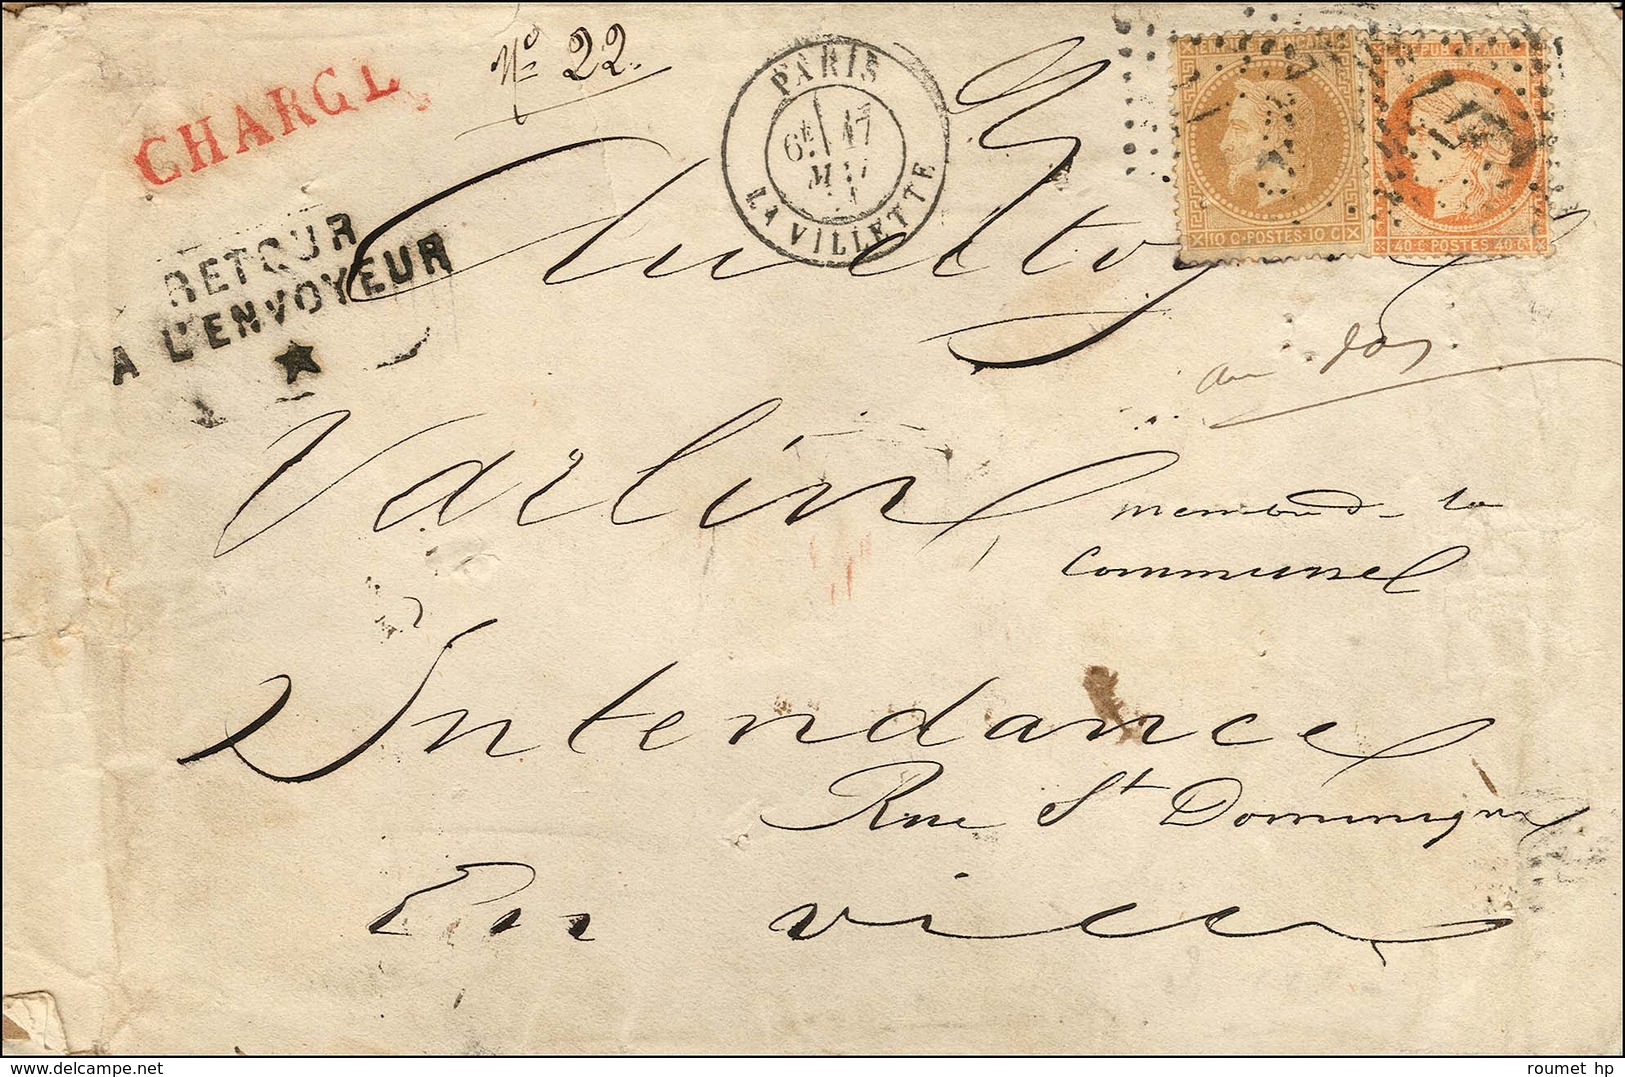 CHARGE
N° 22.
PARIS
6E 17
MAI
71
LA VILLETTE
EMPIRE FRANÇAIS
10 C·POSTES·10 C
REPUB·FRANC·
40·C·POSTES·40·C
RETOUR
A L'ENVOYEUR
Au Citoyen
au dos
Varlin membre d. la
Commune
Intendance
Rue St Dominique
En ville
www.delcampe.net
roumet hp